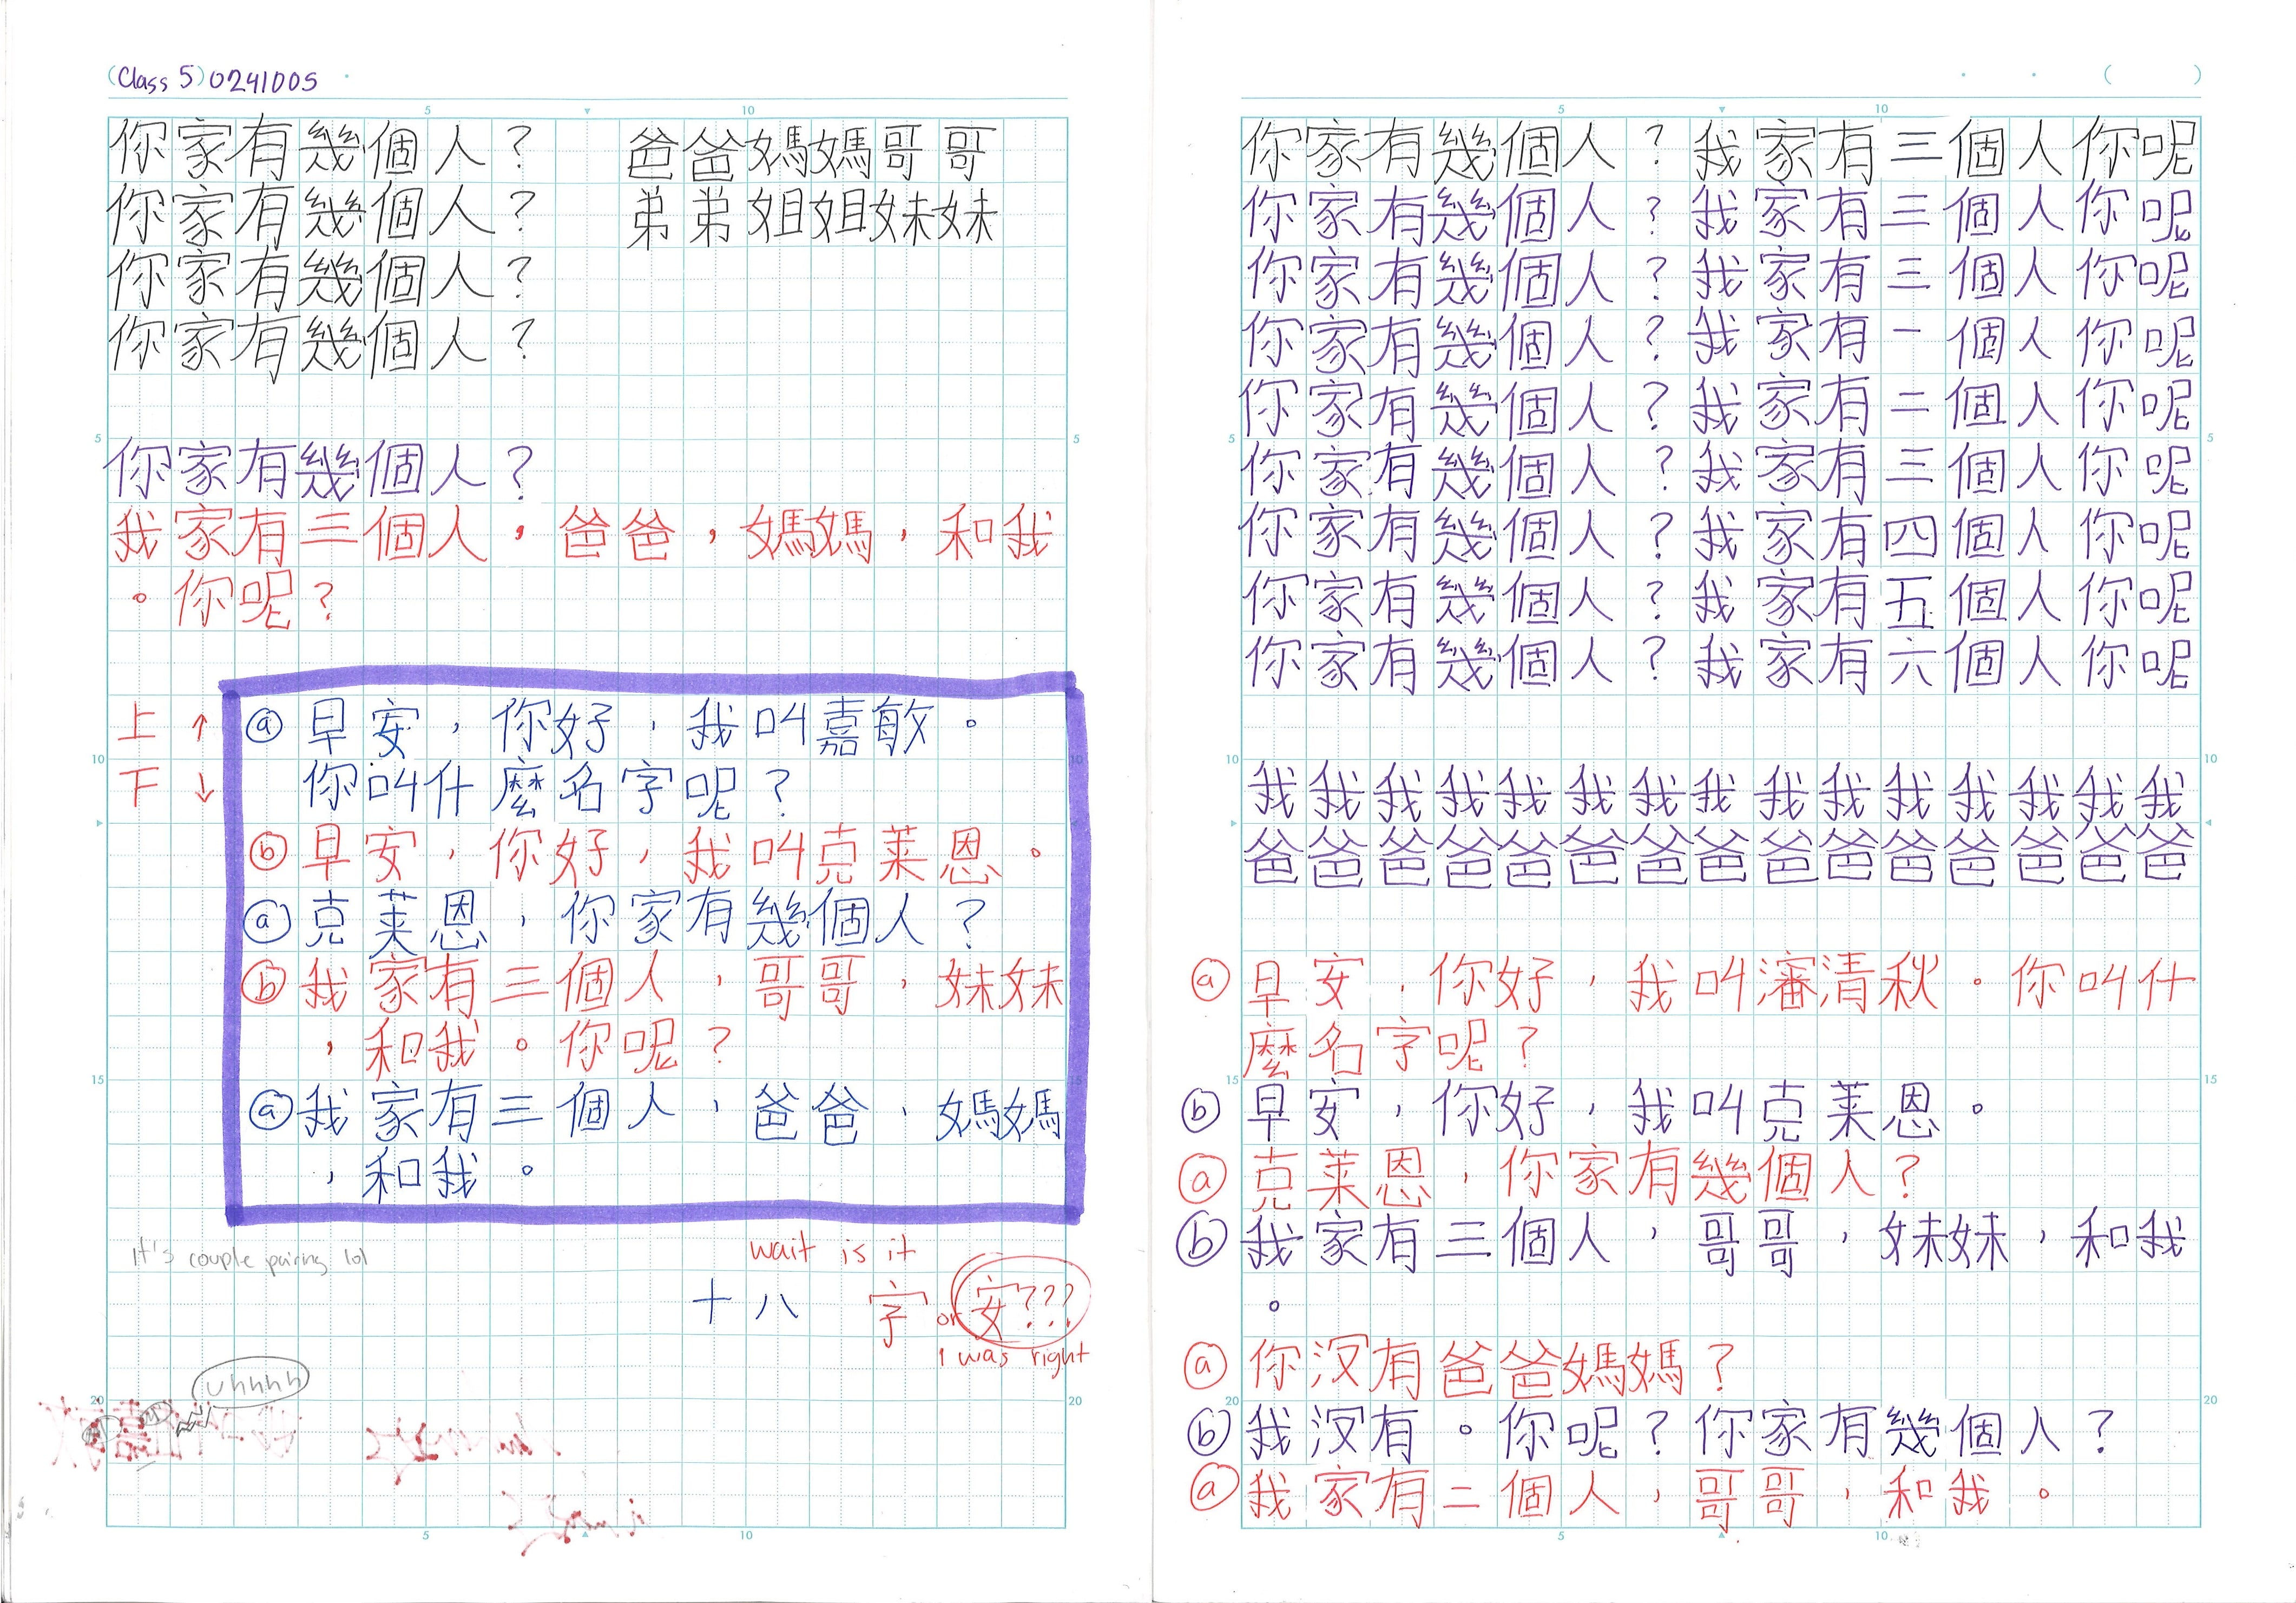 (Class 5) 0241005
你家有幾個人？ 爸爸媽媽哥哥
你家有幾個人？ 弟弟姐姐妹妹
你家有幾個人？
你家有幾個人？
你家有幾個人？
我家有三個人，爸爸，媽媽，和我
。你呢？
上 ↑
下 ↓
ⓐ 早安，你好，我叫嘉敏。
你叫什麼名字呢？
ⓑ 早安，你好，我叫克莱恩。
ⓐ 克莱恩，你家有幾個人？
ⓑ 我家有三個人，哥哥，妹妹
，和我。你呢？
ⓐ 我家有三個人，爸爸，媽媽
，和我。
It's couple pairing lol
wait is it
十八 字 or 安???
I was right
uhhhh
你家有幾個人？我家有三個人你呢
你家有幾個人？我家有三個人你呢
你家有幾個人？我家有三個人你呢
你家有幾個人？我家有一個人你呢
你家有幾個人？我家有二個人你呢
你家有幾個人？我家有三個人你呢
你家有幾個人？我家有四個人你呢
你家有幾個人？我家有五個人你呢
你家有幾個人？我家有六個人你呢
我我我我我我我我我我我我我我我
爸爸爸爸爸爸爸爸爸爸爸爸爸爸爸
ⓐ 早安，你好，我叫瀋清秋。你叫什
麼名字呢？
ⓑ 早安，你好，我叫克莱恩。
ⓐ 克莱恩，你家有幾個人？
ⓑ 我家有三個人，哥哥，妹妹，和我
。
ⓐ 你沒有爸爸媽媽？
ⓑ 我沒有。你呢？你家有幾個人？
ⓐ 我家有二個人，哥哥，和我。